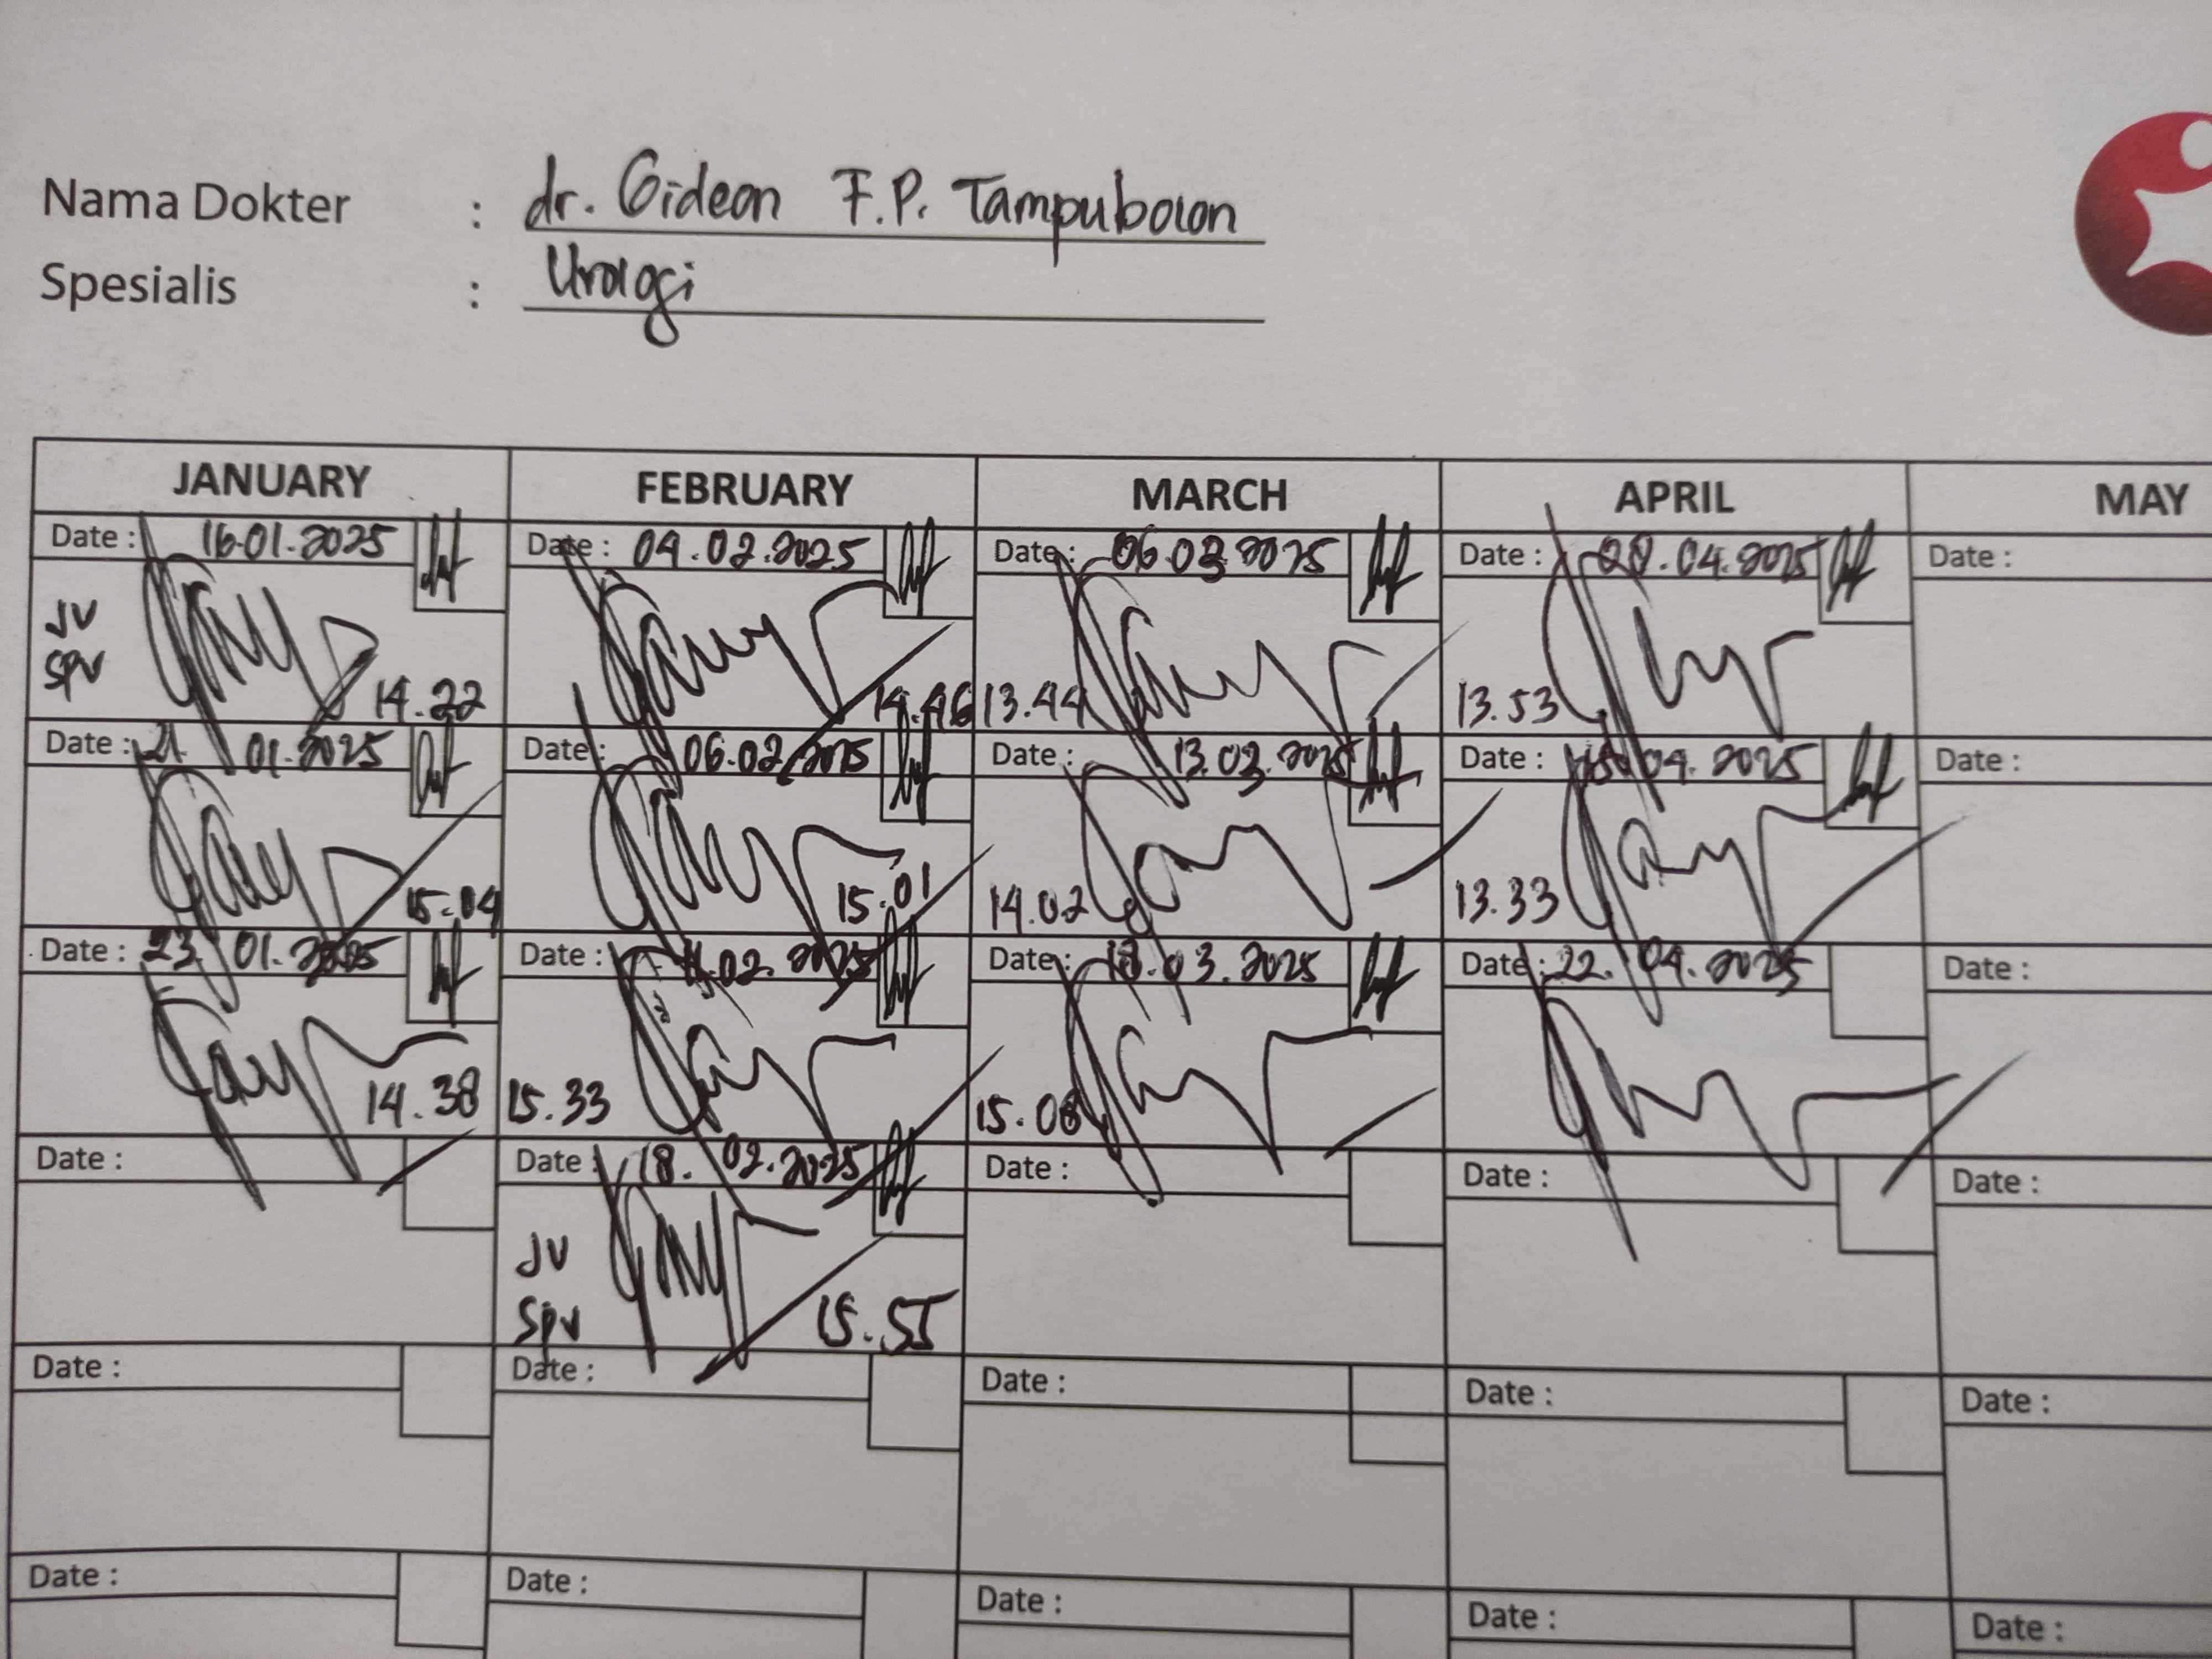 Nama Dokter : dr. Gideon F.P. Tampubolon
Spesialis : Urologi
JANUARY FEBRUARY MARCH APRIL MAY
Date : 16.01.2025 Date : 04.02.2025 Date : 06.03.2025 Date : .04.2025 Date :
JV
SPV
14.22 14.46 13.44 13.53
Date : 21 01.2025 Date : 06.02.2025 Date : 13.03.2025 Date : 15.04.2025 Date :
15.04 15.01 14.02 13.33
Date : 23 01.2025 Date : .02.2025 Date : 18.03.2025 Date : 22.04.2025 Date :
14.38 15.33 15.08
Date : Date : 18. 02.2025 Date : Date : Date :
JV
Spv
15.55
Date : Date : Date : Date : Date :
Date : Date : Date : Date : Date :